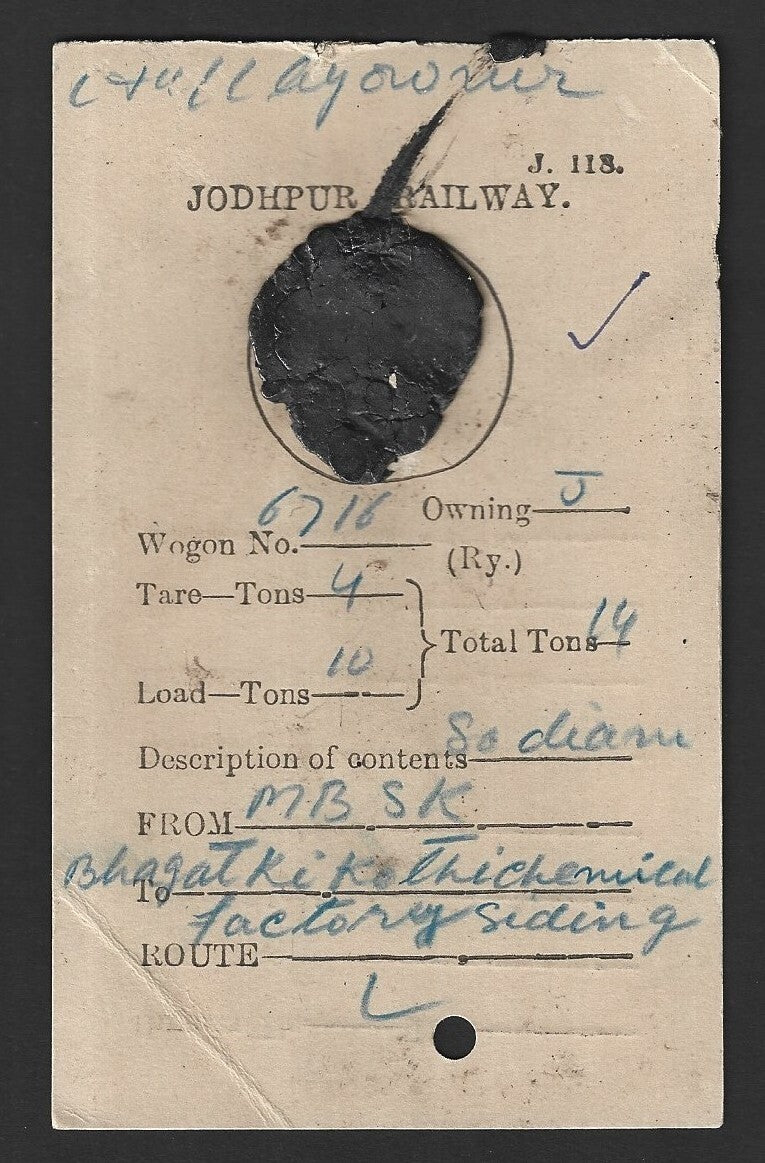 J. 113.
JODHPUR RAILWAY.
Wogon No. 6716 Owning J
(Ry.)
Tare—Tons 4
Total Tons 14
Load—Tons 10
Description of contents Sodiam
FROM MB SK
To Bhagat Ki Kothi chemical
factory Siding
ROUTE
L